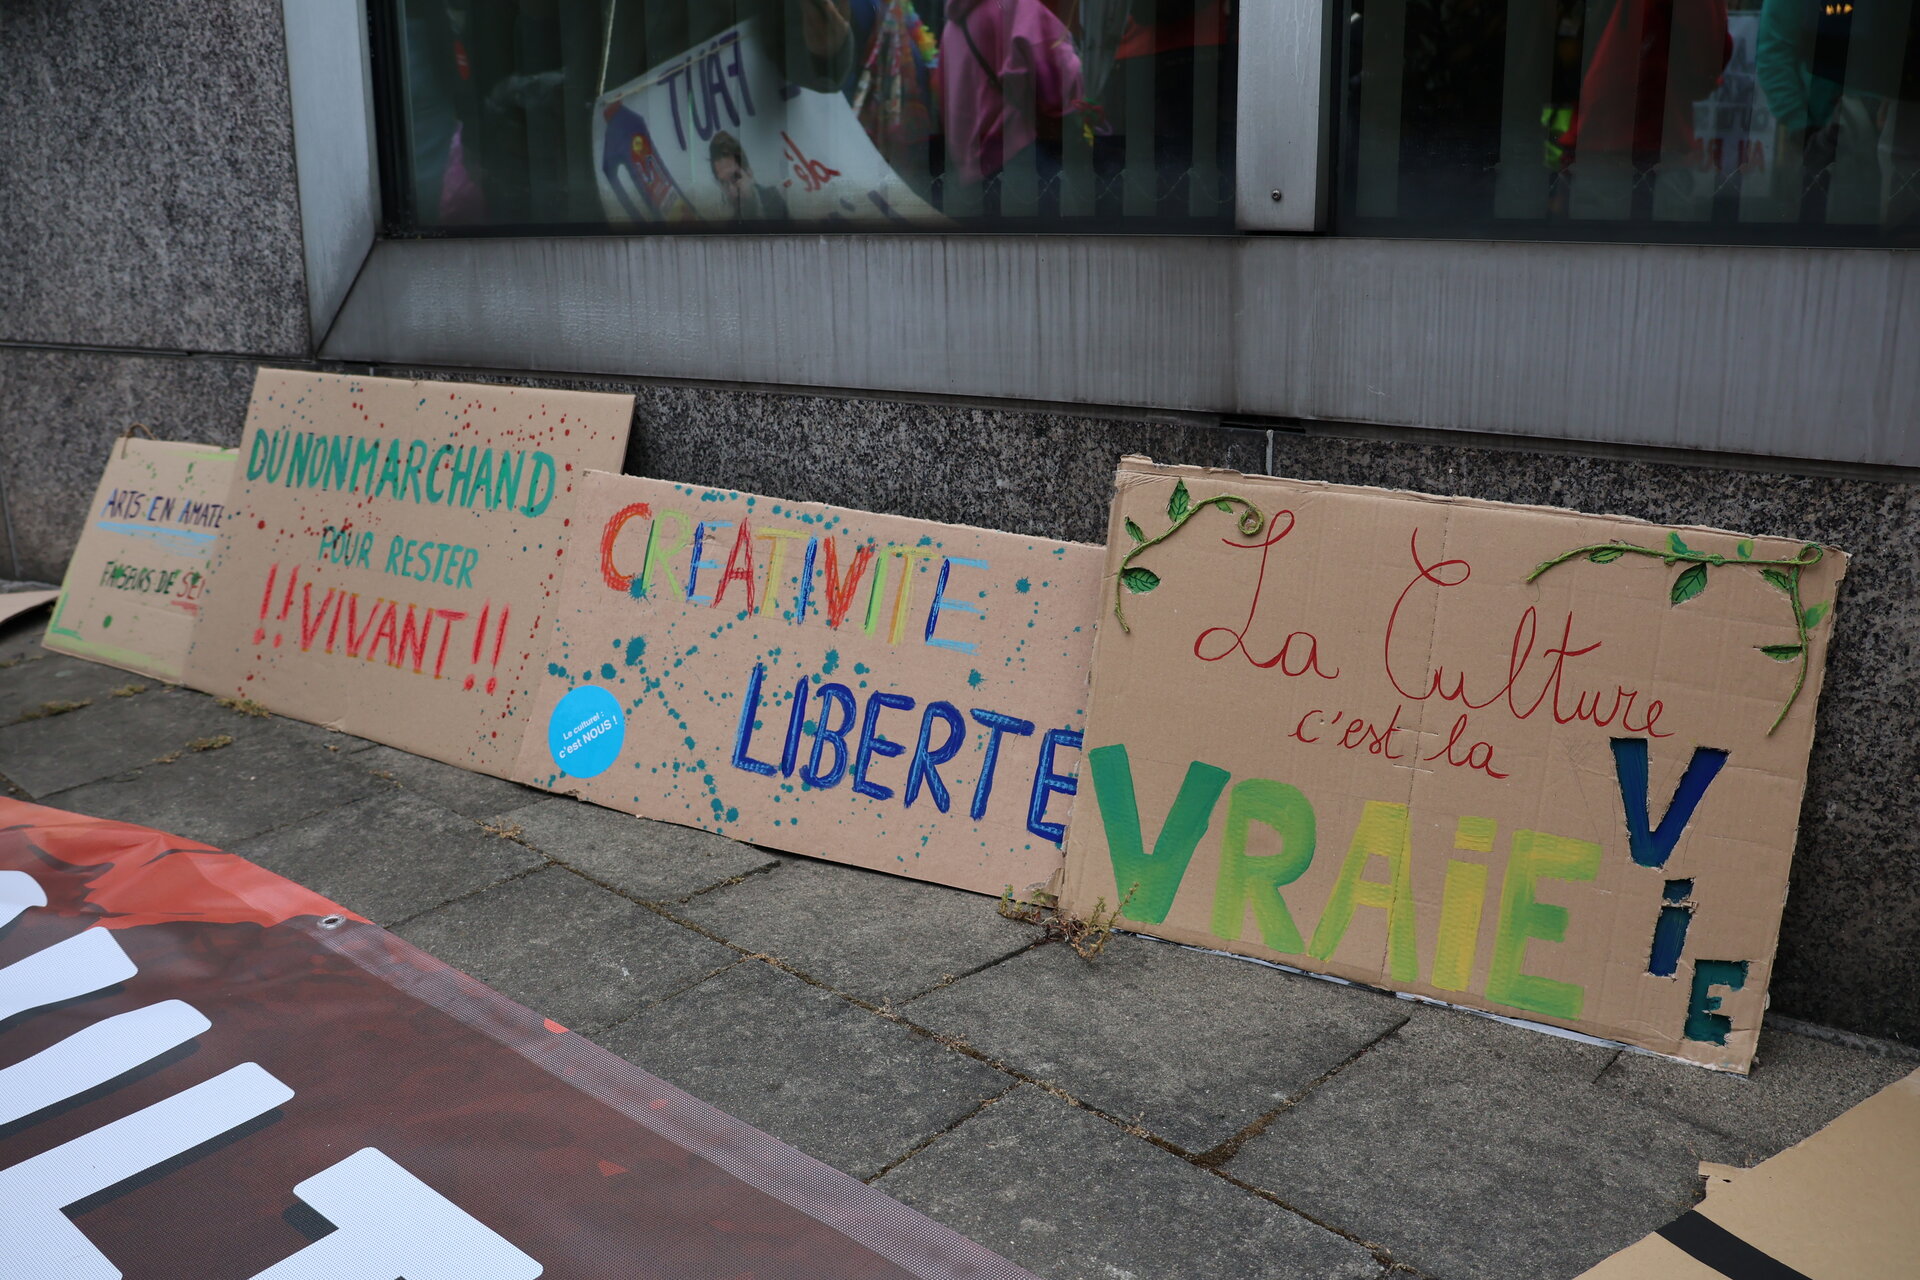 ARTS EN AMATE
FAISEURS DE SE
DU NON MARCHAND
POUR RESTER
!! VIVANT !!
CREATIVITE
LIBERTE
Le culturel :
c'est NOUS !
La Culture
c'est la
VRAiE
ViE
FAUT